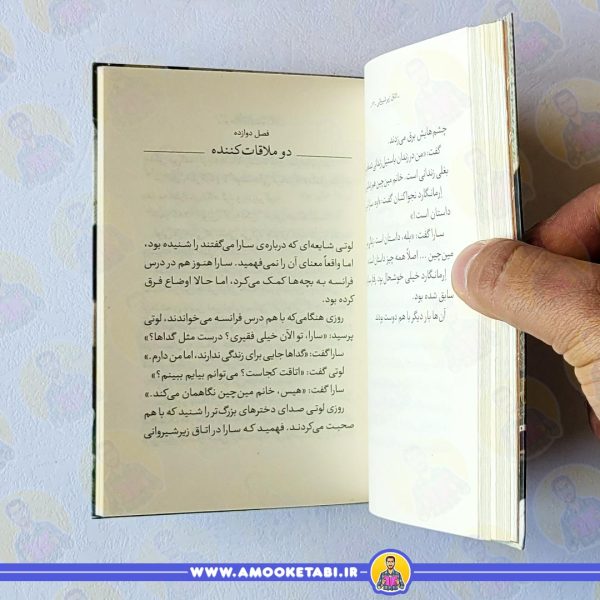 اتاق زیرشیروانی
چشم‌هایش برق می‌زدند.
گفت: «من در زندان باستیل زندانی
بغلی زندانی است. خانم مین‌چین هم
ارمانگارد نجواکنان گفت:
داستان است!»
سارا گفت: «بله، داستان است.
مین‌چین ... اصلاً همه چیز داستان
ارمانگارد خیلی خوشحال بود.
سابق شده بود.
آن‌ها بار دیگر با هم دوست بودند
فصل دوازده
دو ملاقات‌کننده
لوتی شایعه‌ای که درباره‌ی سارا می‌گفتند را شنیده بود،
اما واقعاً معنای آن را نمی‌فهمید. سارا هنوز هم در درس
فرانسه به بچه‌ها کمک می‌کرد، اما حالا اوضاع فرق
کرده بود.
روزی هنگامی‌که با هم درس فرانسه می‌خواندند، لوتی
پرسید: «سارا، تو الان خیلی فقیری؟ درست مثل گداها؟»
سارا گفت: «گداها جایی برای زندگی ندارند، اما من دارم.»
لوتی گفت: «اتاقت کجاست؟ می‌توانم بیایم ببینم؟»
سارا گفت: «هیس، خانم مین‌چین نگاهمان می‌کند.»
روزی لوتی صدای دخترهای بزرگ‌تر را شنید که با هم
صحبت می‌کردند. فهمید که سارا در اتاق زیرشیروانی
WWW.AMOOKETABI.IR